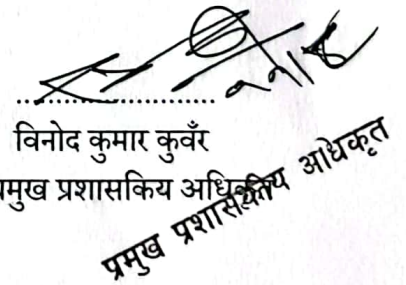 विनोद कुमार कुवँर
प्रमुख प्रशासकिय अधिकृत
प्रमुख प्रशासकीय अधिकृत